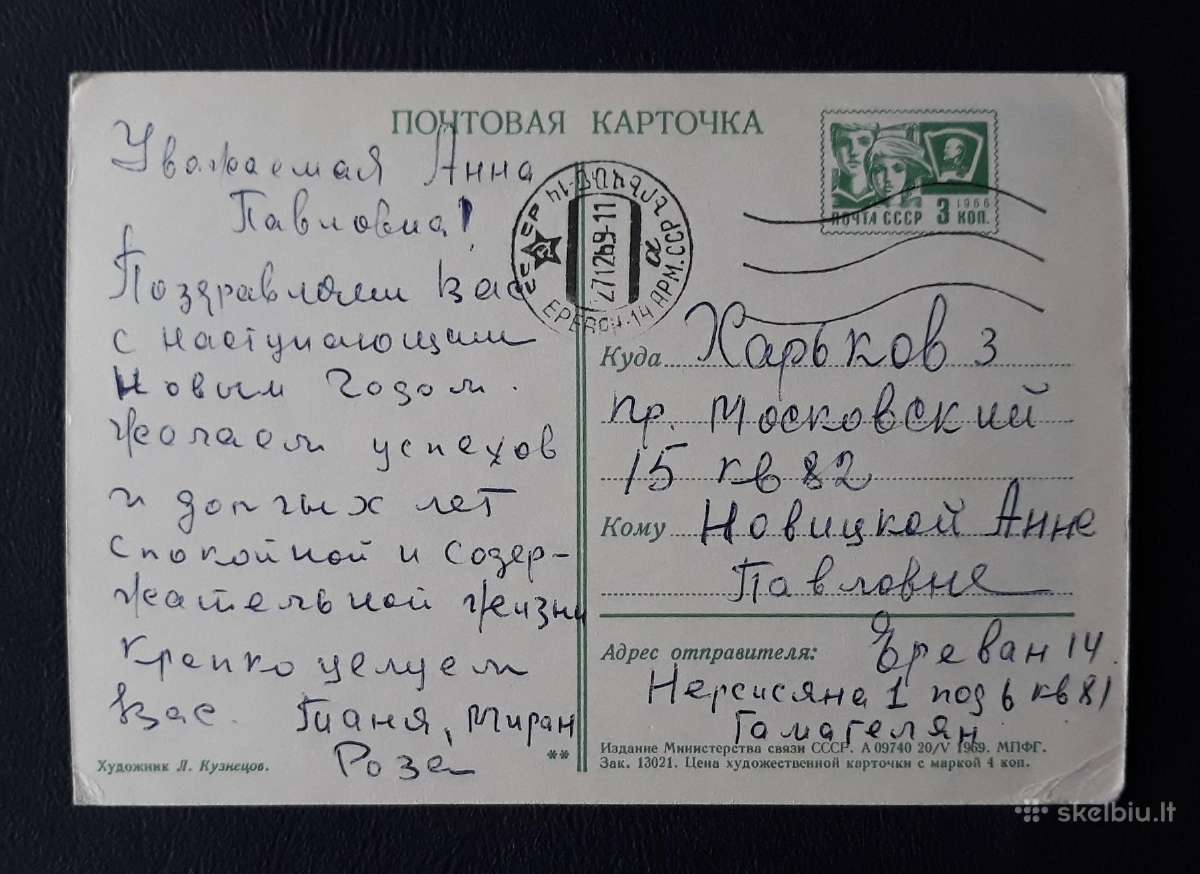 ПОЧТОВАЯ КАРТОЧКА
Уважаемая Анна
Павловна!
Поздравляем Вас
с наступающим
Новым Годом.
Желаем успехов
и долгих лет
спокойной и содер-
жательной жизни
Крепко целуем
Вас. Таня, Миран
Роза
Художник Л. Кузнецов.
**
ЕРЕВАН-14 АРМ. ССР
271269-11
α
1966
ПОЧТА СССР 3 КОП.
Куда Харьков 3
пр. Московский
15 кв 82
Кому Новицкой Анне
Павловне
Адрес отправителя: Ереван 14
Нерсисяна 1 под 6 кв 81
Гамагелян
Издание Министерства связи СССР. А 09740 20/V 1969. МПФГ.
Зак. 13021. Цена художественной карточки с маркой 4 коп.
skelbiu.lt